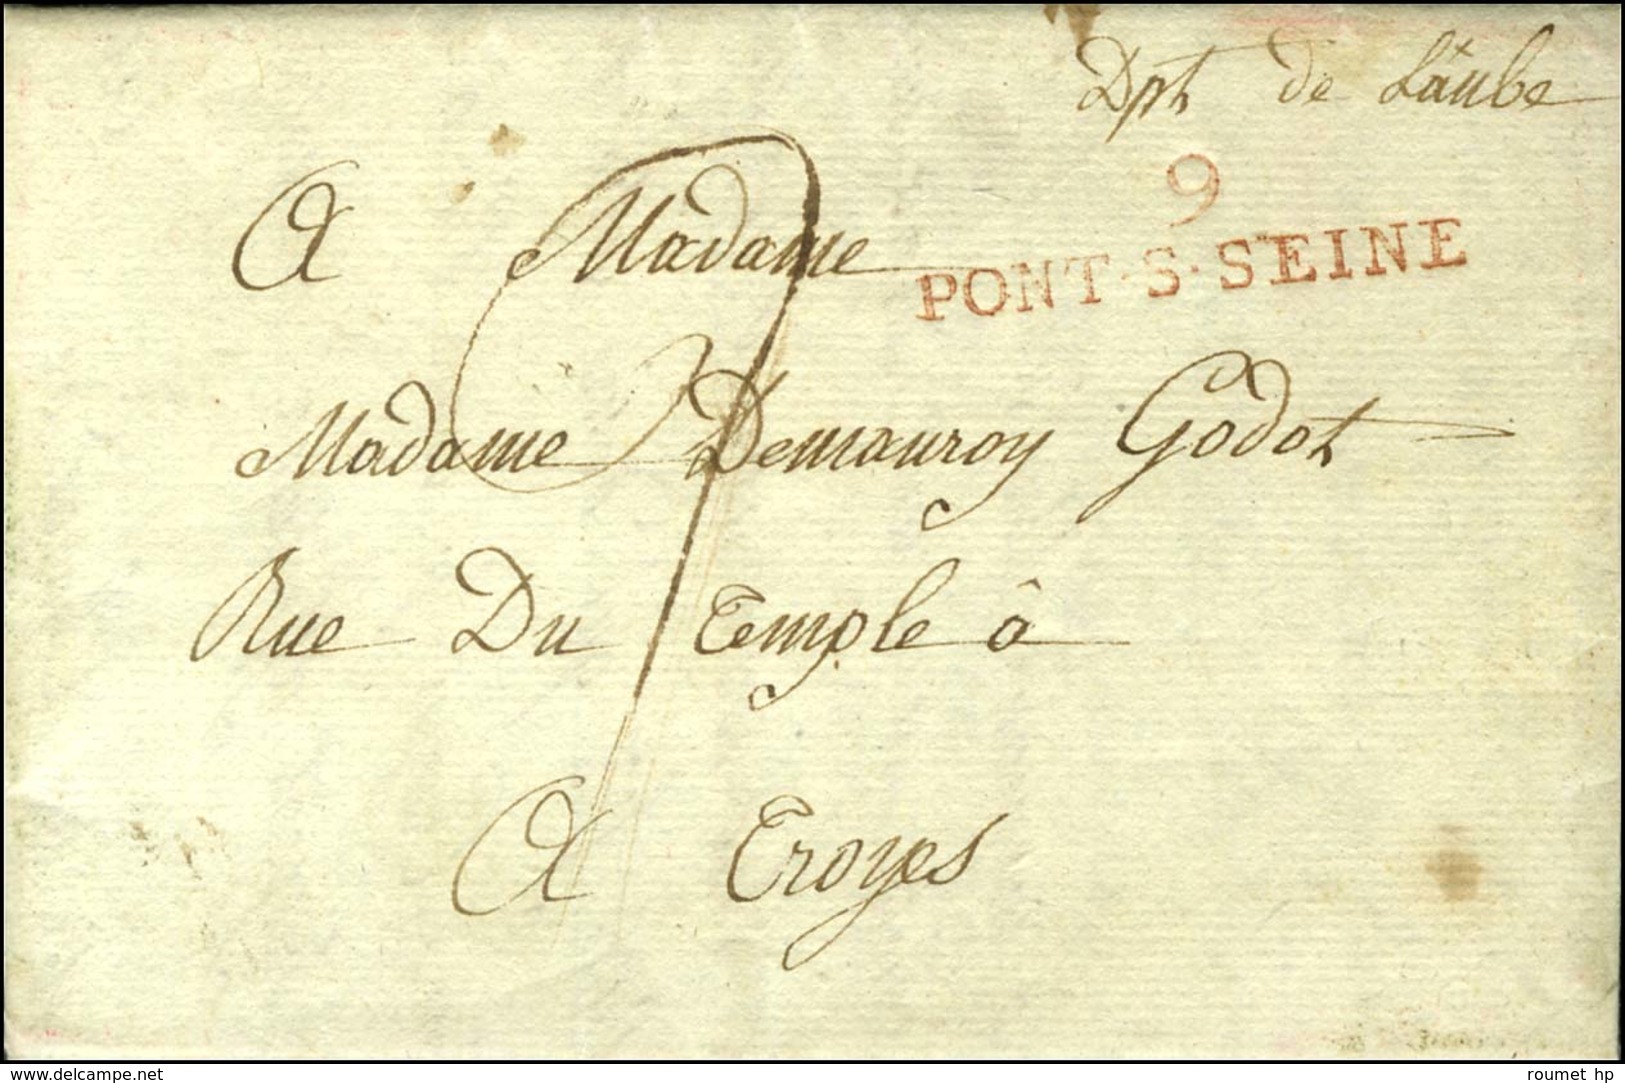 Dpt de L'aube
9
PONT·S·SEINE
A Madame
Madame Demauroy Godot
Rue Du Temple â
A Troyes
www.delcampe.net
roumet hp